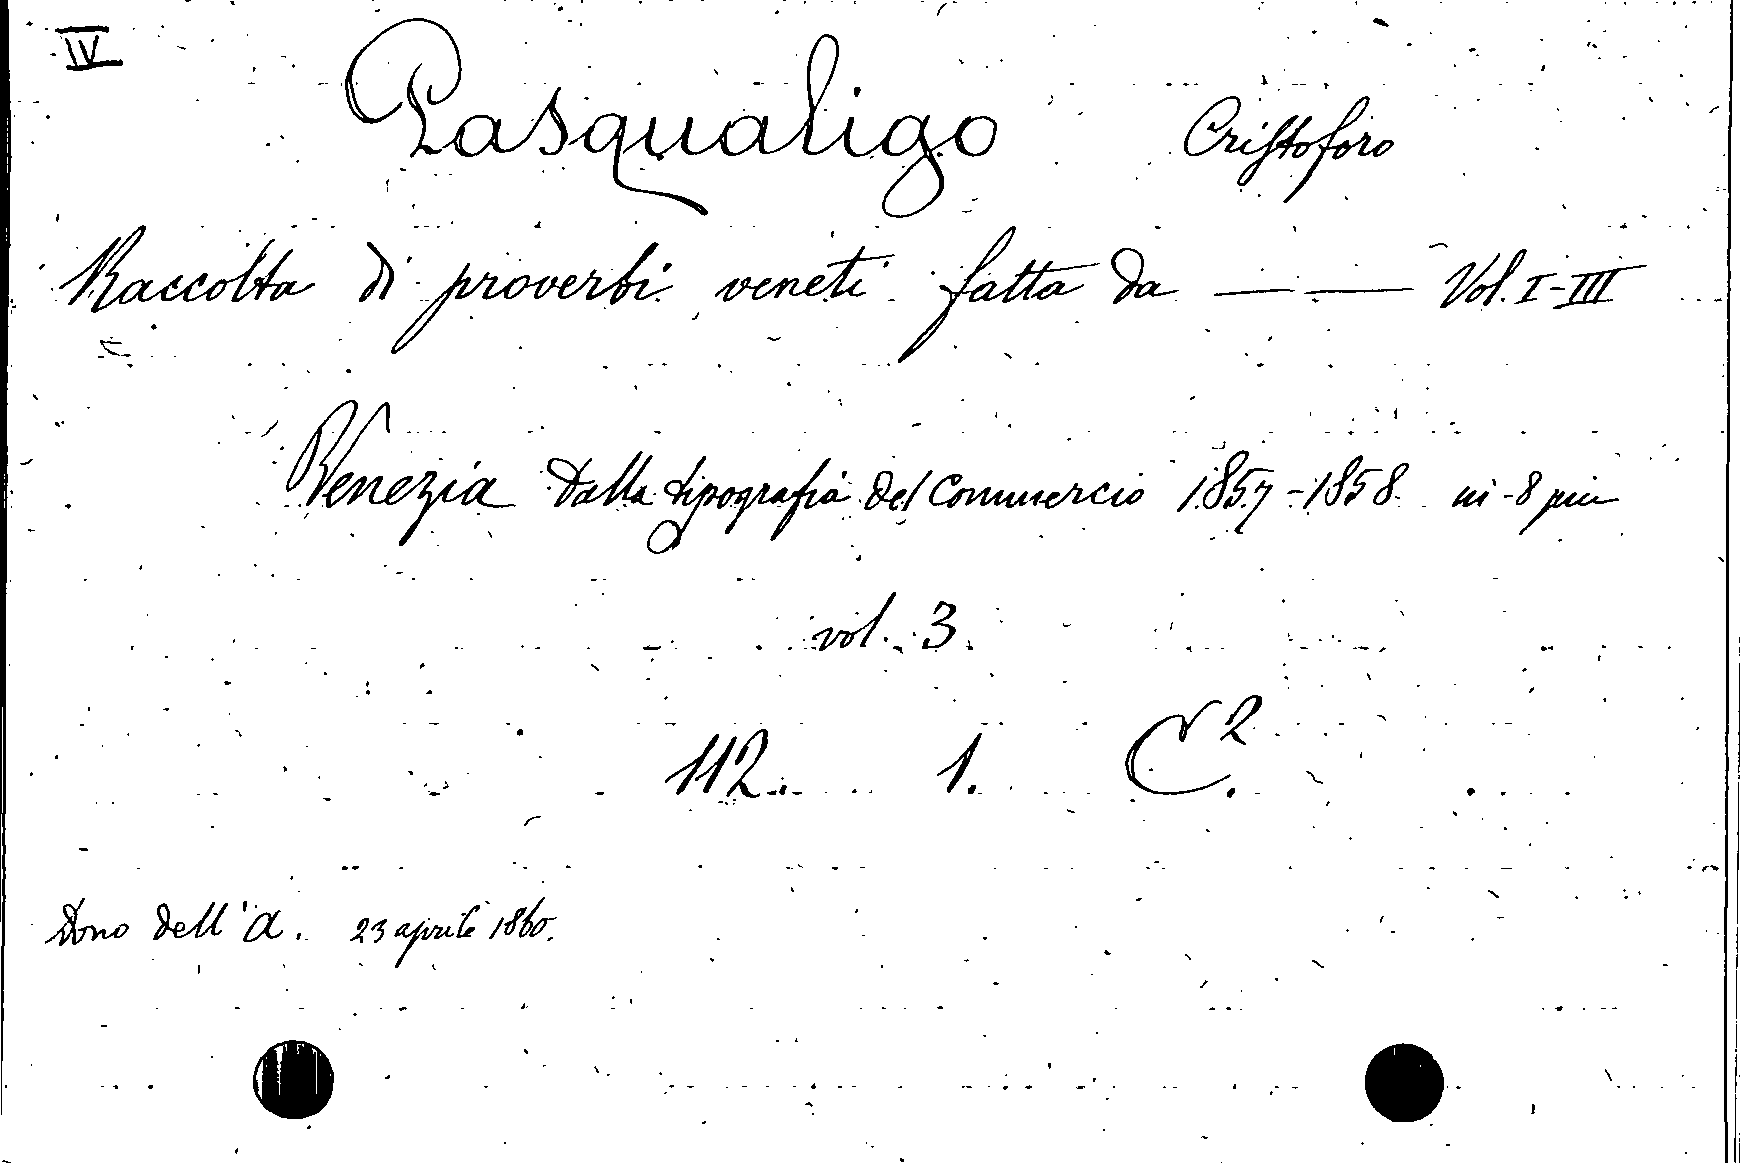 IV
Pasqualigo Cristoforo
Raccolta di proverbi veneti fatta da — — Vol. I-III
Venezia dalla tipografia del Commercio 1857-1858 in-8 picc
vol. 3.
112. 1. C².
Dono dell'A. 23 aprile 1860.